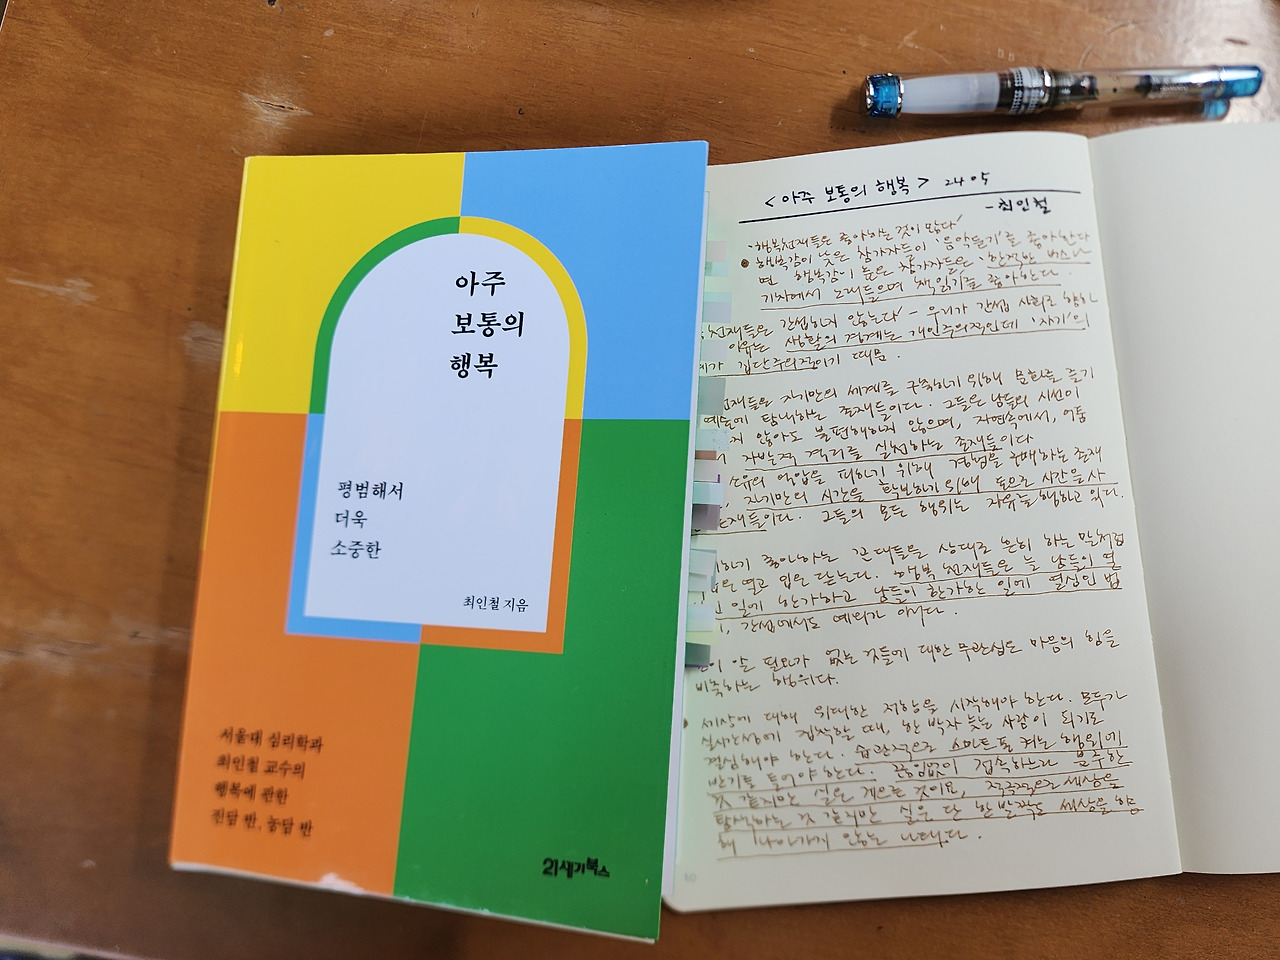 아주
보통의
행복
평범해서
더욱
소중한
최인철 지음
서울대 심리학과
최인철 교수의
행복에 관한
진담 반, 농담 반
21세기북스
<아주 보통의 행복> 24 05
- 최인철
'행복천재들은 좋아하는 것이 많다'
행복감이 낮은 참가자들이 '음악듣기'를 좋아한다
면 행복감이 높은 참가자들은 '한적한 버스나
기차에서 노래들으며 책읽기'를 좋아한다.
천재들은 간섭하지 않는다' - 우리가 간섭 사회로 향하
이유는 생활의 경계는 개인주의적인데 '자기'의
가 집단주의적이기 때문.
천재들은 자기만의 세계를 구축하기 위해 문화를 즐기
예술에 탐닉하는 존재들이다. 그들은 남들의 시선이
지 않아도 불편해하지 않으며, 자연속에서, 어둠
자발적 격리를 실천하는 존재들이다
소유의 억압을 피하기 위해 경험을 구매하는 존재
, 자기만의 시간을 확보하기 위해 돈으로 시간을 사
존재들이다. 그들의 모든 행위는 자유를 행하고 있다.
하기 좋아하는 꼰대들을 상대로 흔히 하는 말처럼
은 열고 입은 닫는다. 행복 천재들은 늘 남들이 열
일에 한가하고 남들이 한가한 일에 열심인 법
, 간섭에서도 예외가 아니다.
이 알 필요가 없는 것들에 대한 무관심도 마음의 힘을
비축하는 행위다.
세상에 대해 위대한 저항을 시작해야 한다. 모두가
실시간성에 집착할 때, 한 박자 늦는 사람이 되기로
결심해야 한다. 습관적으로 스마트폰 켜는 행위에
반기를 들어야 한다. 끊임없이 접속하느라 분주한
것 같지만 실은 게으른 것이요, 적극적으로 세상을
탐색하는 것 같지만 실은 단 한 발짝도 세상을 향
해 나아가지 않는 나태다.